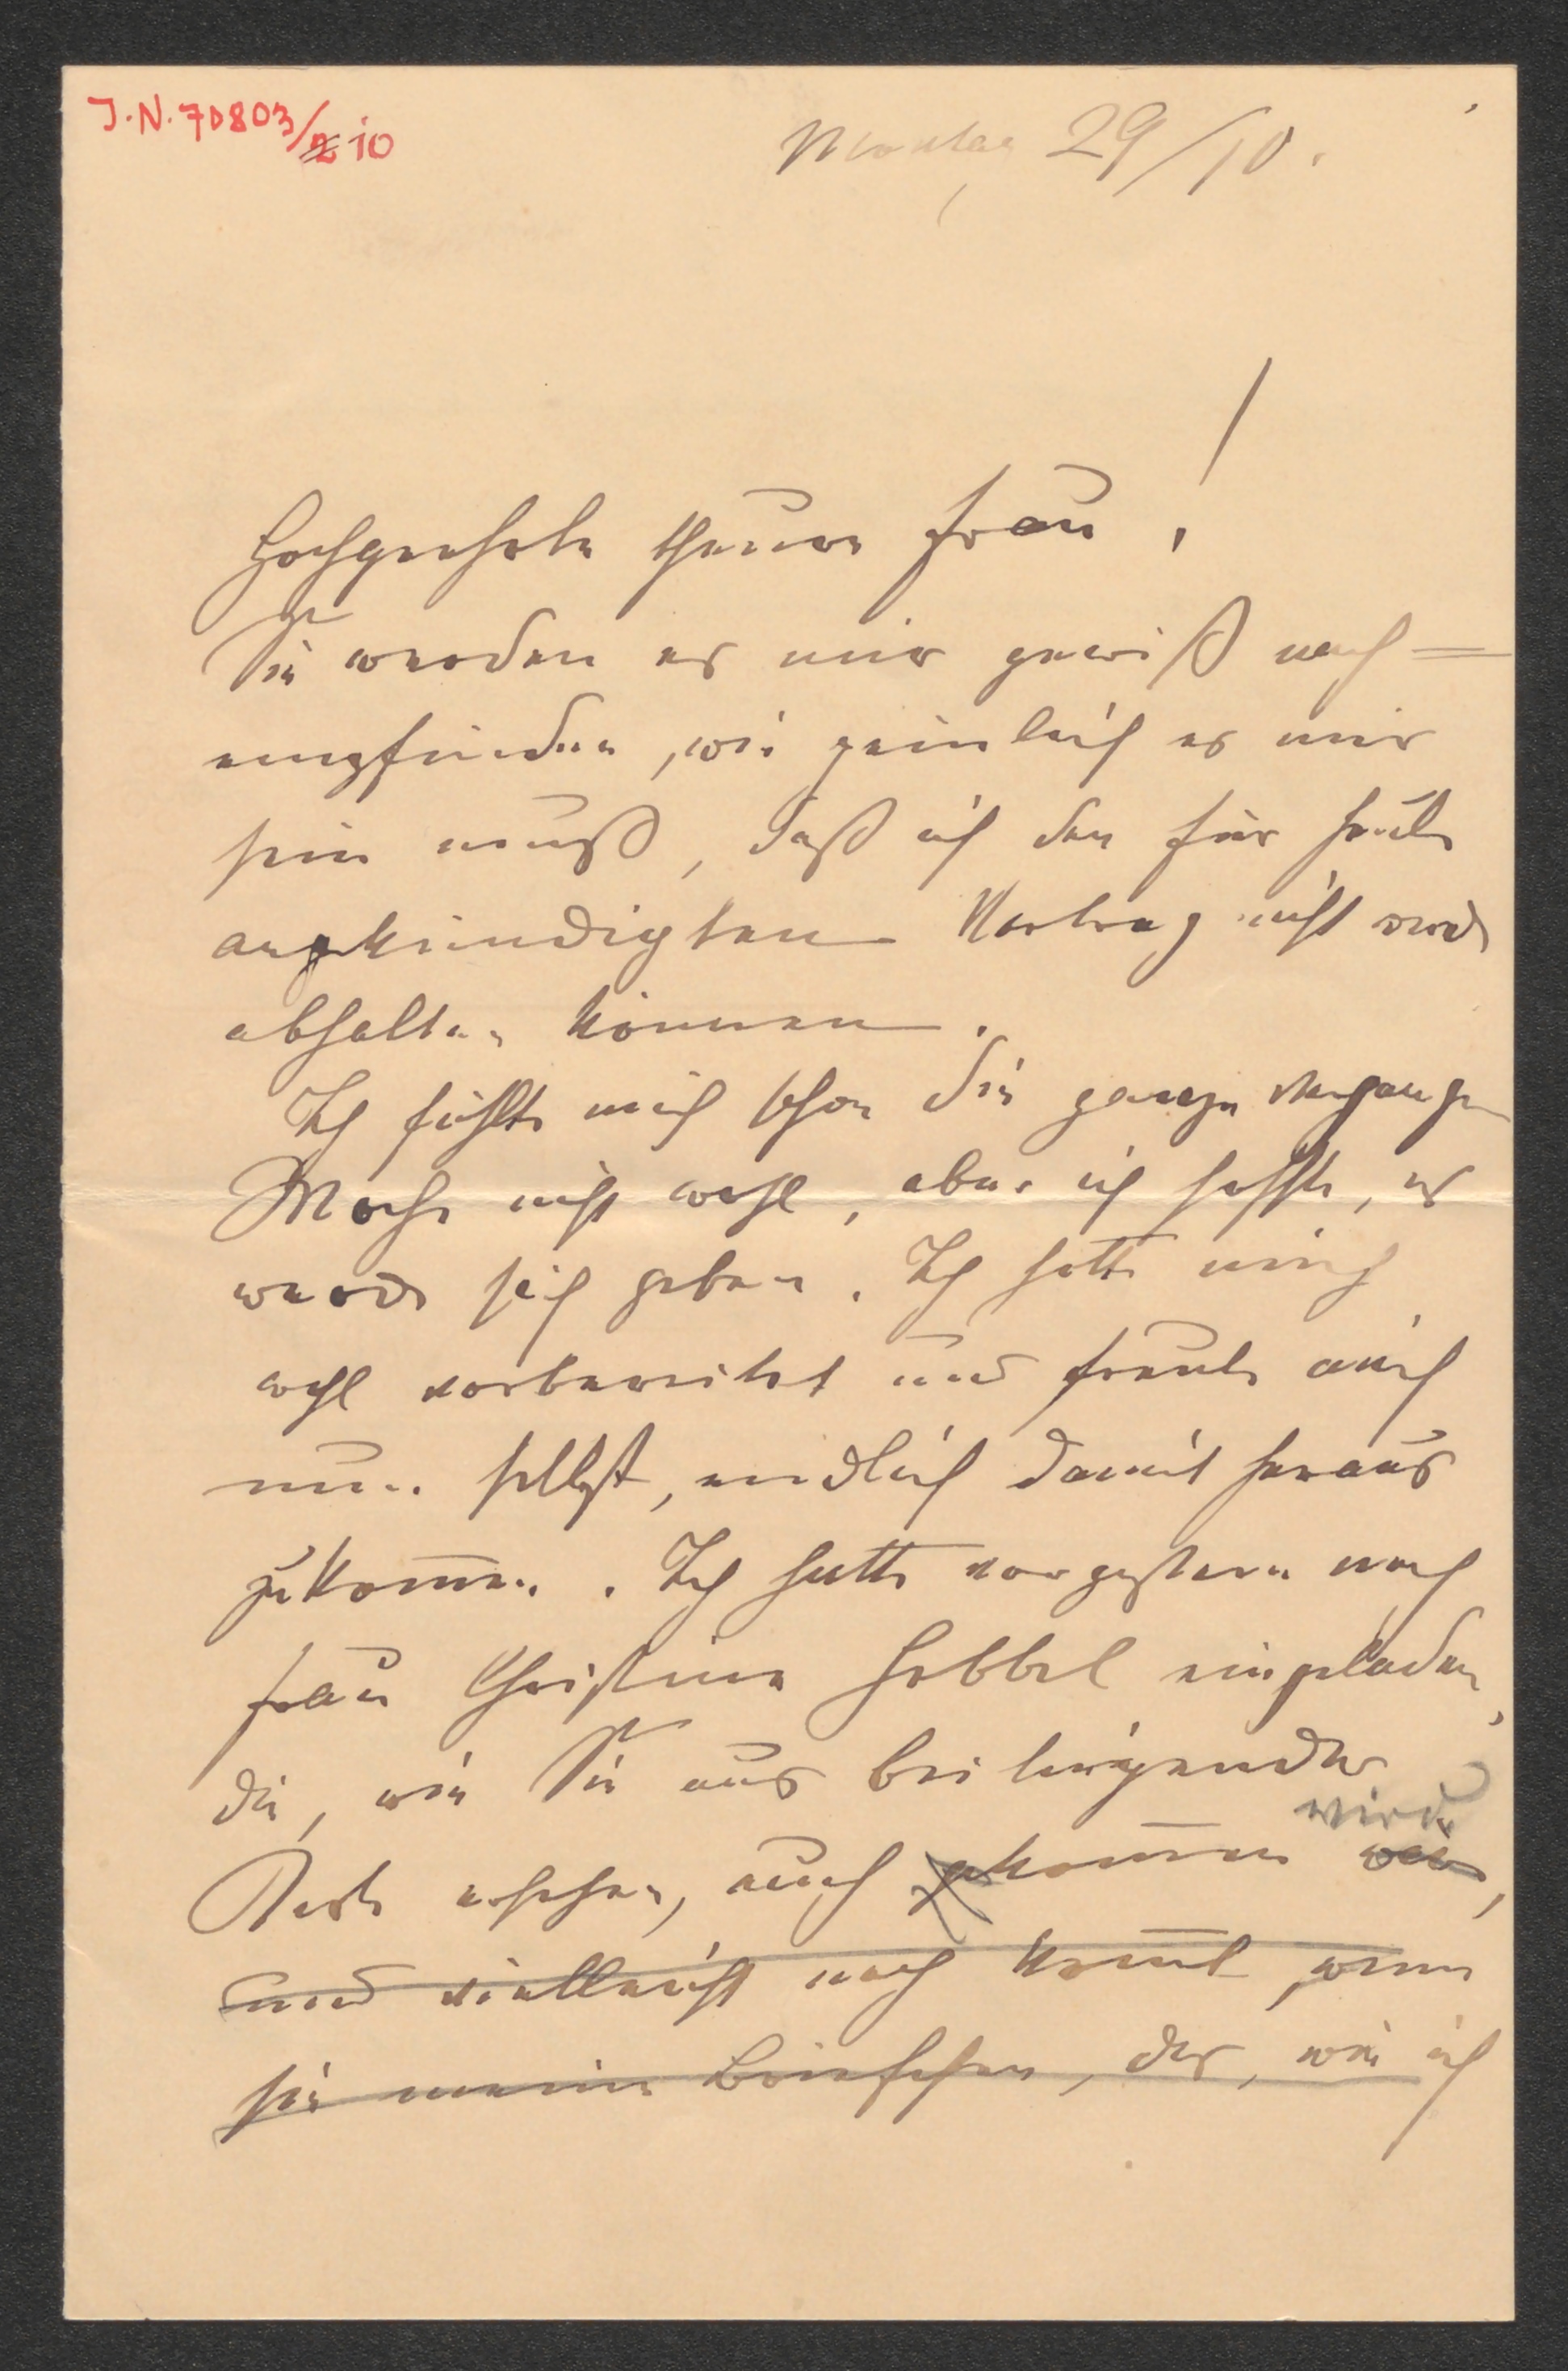 J.N. 70803/2 10
Montag 29/10.
Hochgeehrte theure Frau!
Sie werden es mir gewiß nach=
empfinden, wie peinlich es mir
sein muß, daß ich den für heute
angekündigten Vortrag nicht werde
abhalten können.
Ich fühlte mich schon die ganze vergangene
Woche nicht wohl, aber ich hoffte, es
werde sich geben. Ich hatte mich
wohl vorbereitet und freute mich
nun selbst, endlich damit heraus
zukom̄en. Ich hatte vorgestern noch
Frau Christine Hebbel eingeladen,
die, wie Sie aus beiliegender
wird
Karte ersehen, auch gekom̄en wäre,
und vielleicht noch kom̄t, wenn
sie meine Briefchen, der, wie ich